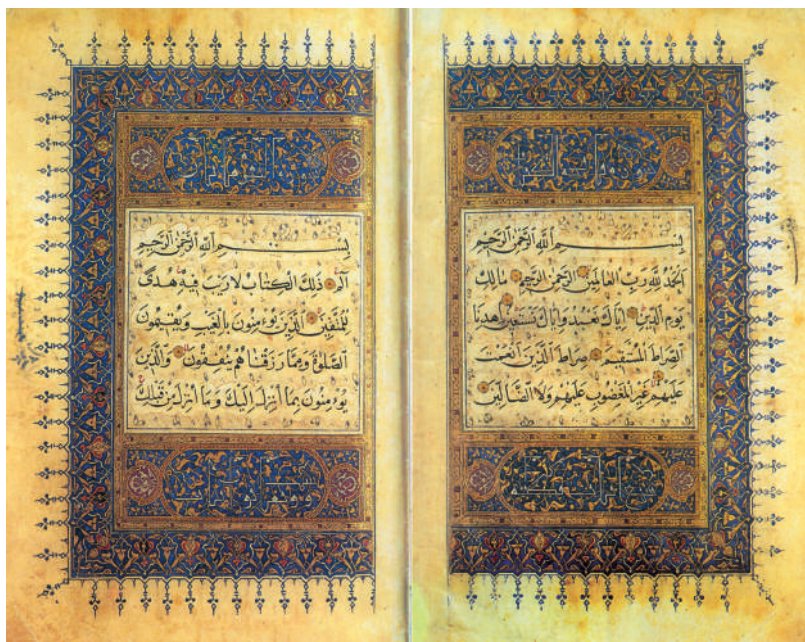 بِسْمِ ٱللَّهِ ٱلرَّحْمَٰنِ ٱلرَّحِيمِ
ٱلْحَمْدُ لِلَّهِ رَبِّ ٱلْعَالَمِينَ ٱلرَّحْمَٰنِ ٱلرَّحِيمِ مَالِكِ
يَوْمِ ٱلدِّينِ إِيَّاكَ نَعْبُدُ وَإِيَّاكَ نَسْتَعِينُ ٱهْدِنَا
ٱلصِّرَاطَ ٱلْمُسْتَقِيمَ صِرَاطَ ٱلَّذِينَ أَنْعَمْتَ
عَلَيْهِمْ غَيْرِ ٱلْمَغْضُوبِ عَلَيْهِمْ وَلَا ٱلضَّالِّينَ
بِسْمِ ٱللَّهِ ٱلرَّحْمَٰنِ ٱلرَّحِيمِ
الٓمٓ ذَٰلِكَ ٱلْكِتَابُ لَا رَيْبَ فِيهِ هُدًى
لِلْمُتَّقِينَ ٱلَّذِينَ يُؤْمِنُونَ بِٱلْغَيْبِ وَيُقِيمُونَ
ٱلصَّلَوٰةَ وَمِمَّا رَزَقْنَاهُمْ يُنْفِقُونَ وَٱلَّذِينَ
يُؤْمِنُونَ بِمَا أُنْزِلَ إِلَيْكَ وَمَا أُنْزِلَ مِنْ قَبْلِكَ